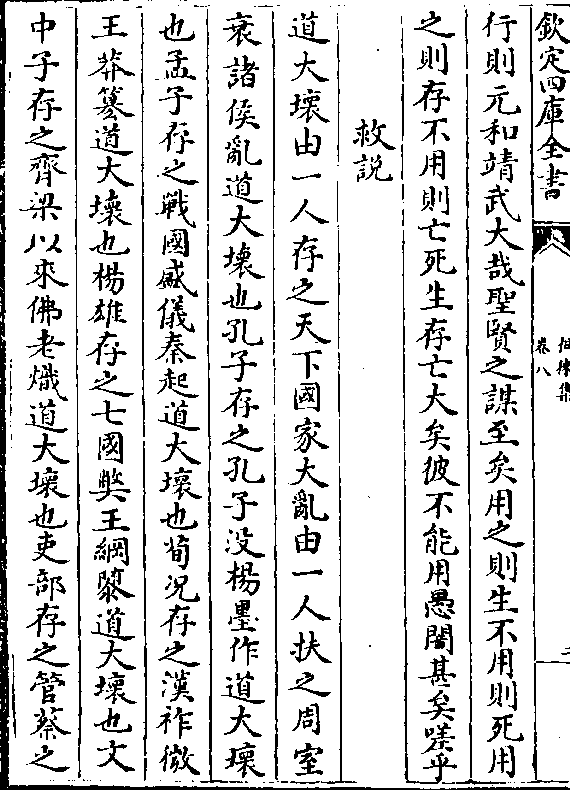 欽定四庫全書
卷八
行則元和靖武大哉聖賢之謀至矣用之則生不用則死用
之則存不用則亡死生存亡大矣彼不能用愚闇甚矣嗟乎
救説
道大壞由一人存之天下國家大亂由一人扶之周室
衰諸侯亂道大壞也孔子存之孔子没楊墨作道大壞
也孟子存之戰國盛儀秦起道大壞也荀況存之漢祚微
王莽簒道大壞也楊雄存之七國獘王綱隳道大壞也文
中子存之齊梁以來佛老熾道大壞也吏部存之管蔡之